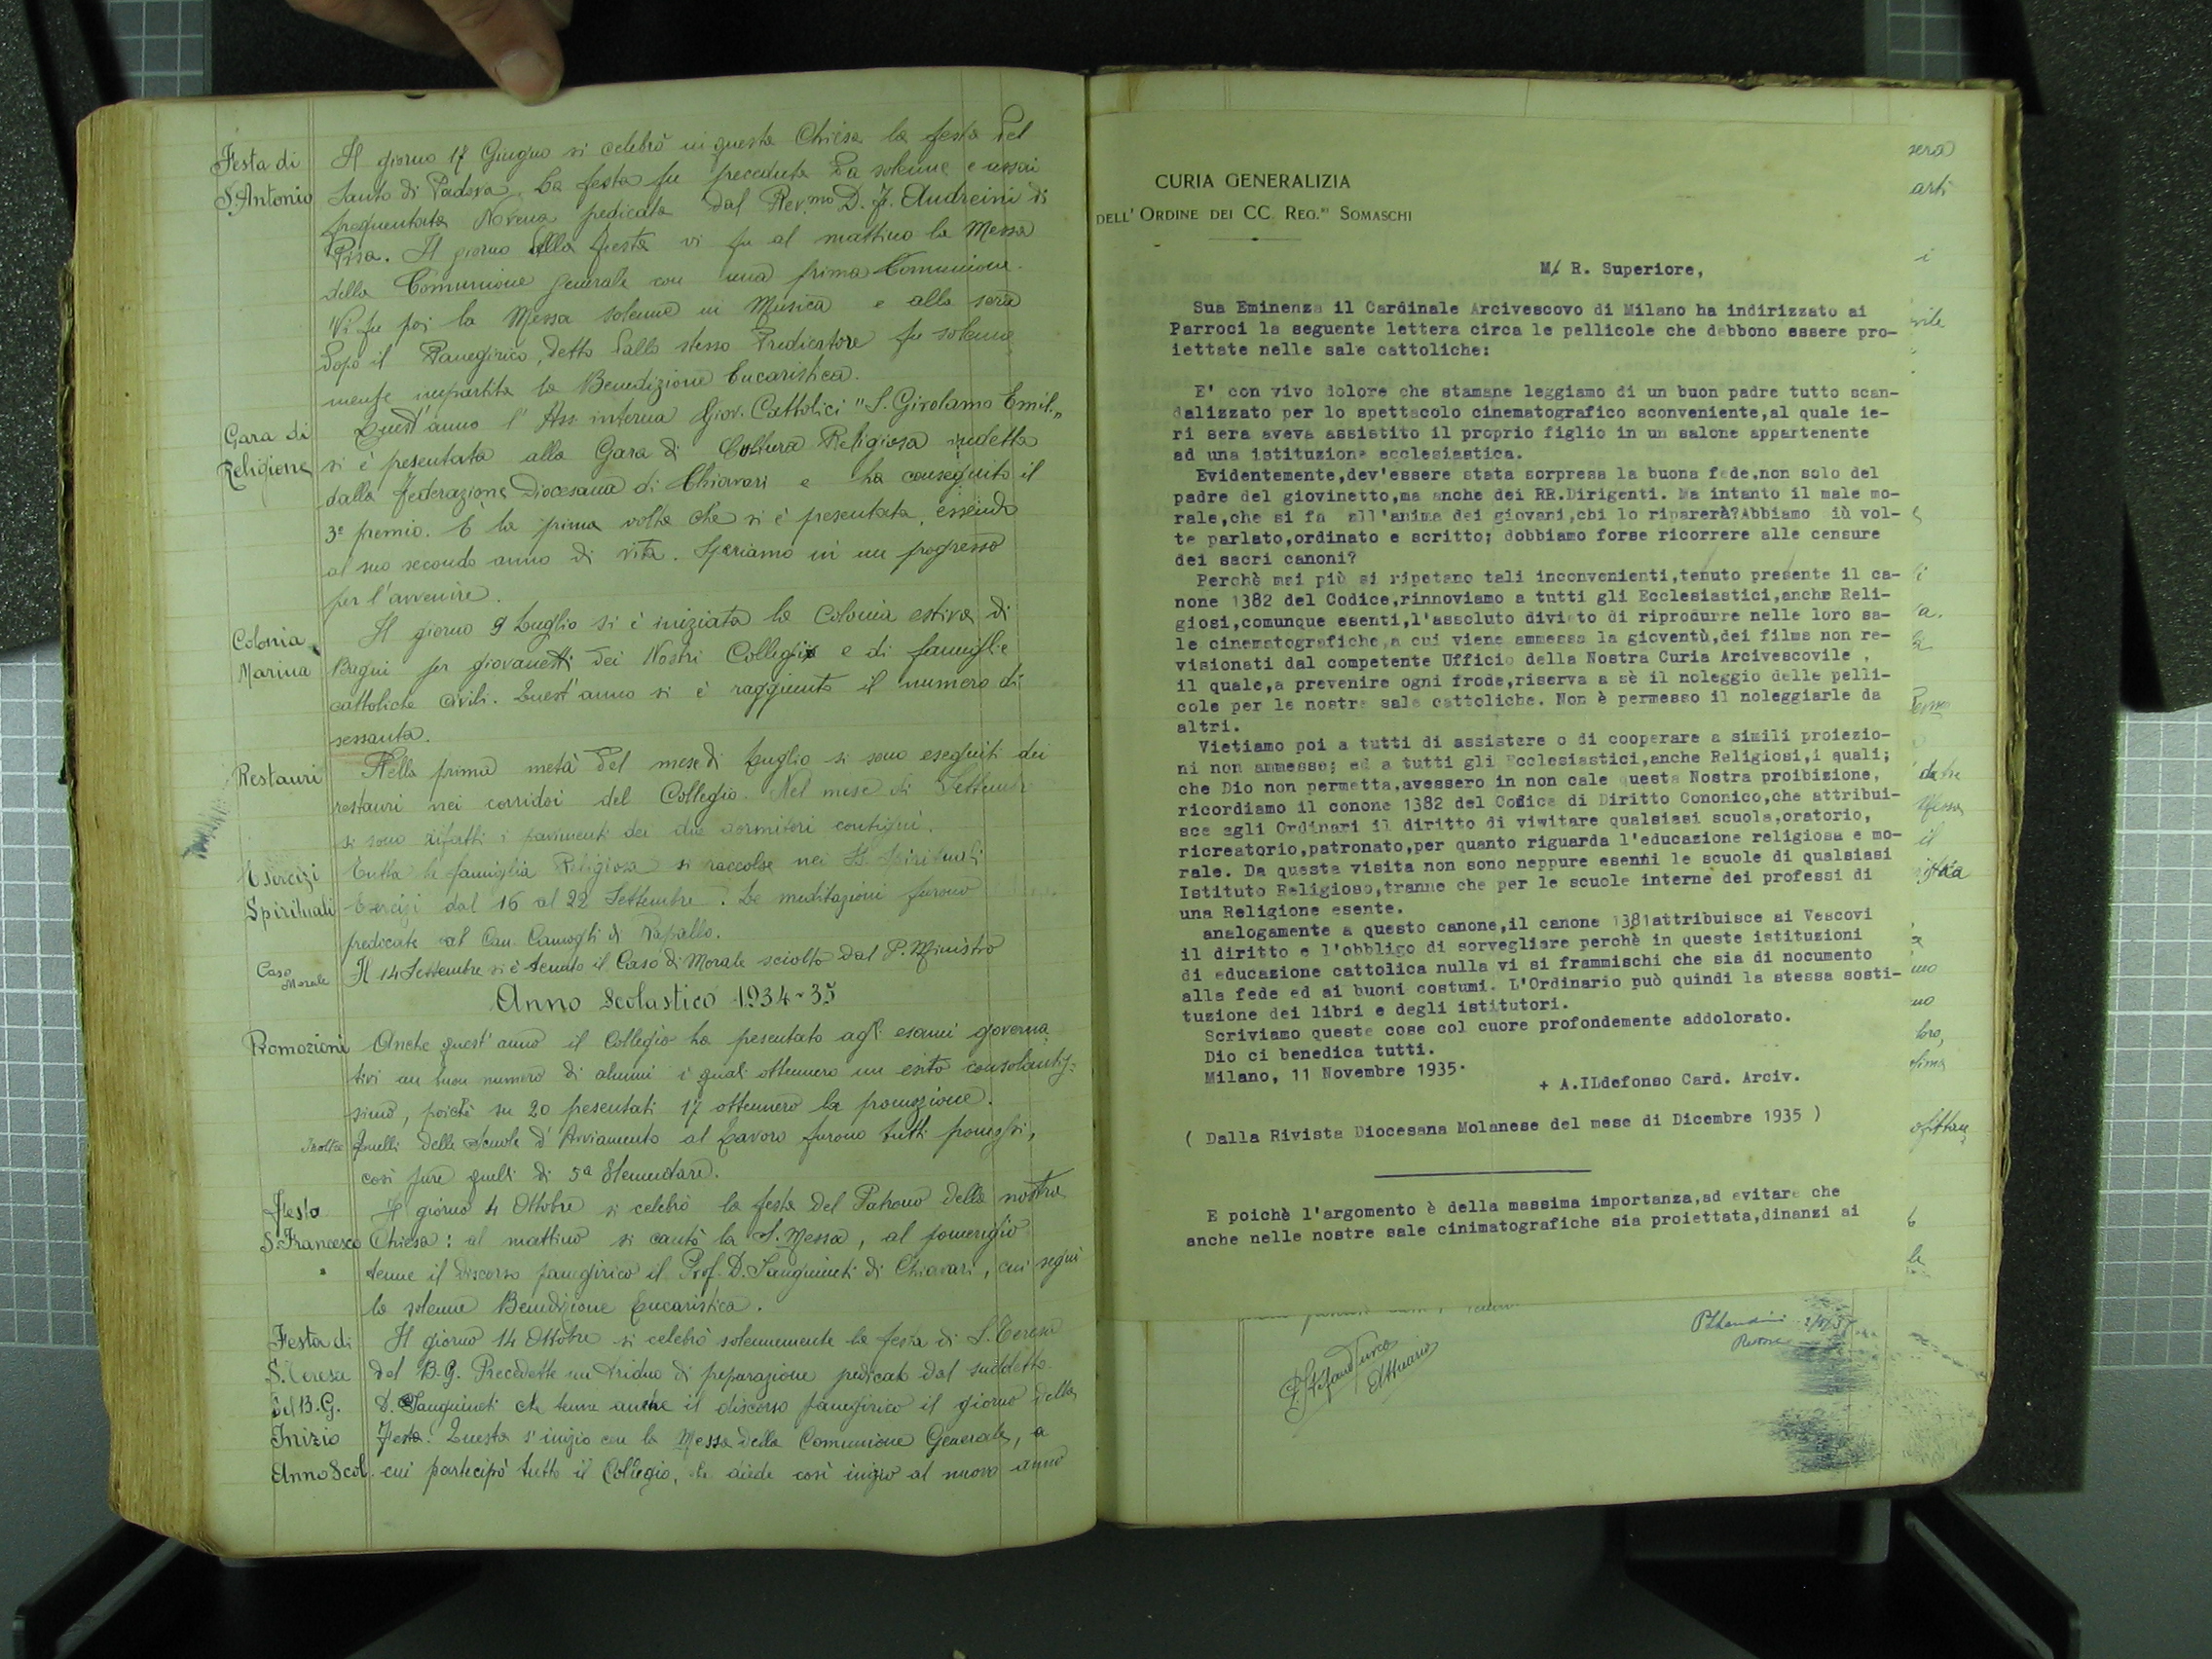 Festa di S. Antonio
Il giorno 17 Giugno si celebrò in questa Chiesa la festa del
Santo di Padova. La festa fu preceduta da solenne e assai
frequentata Novena predicata dal Rev.mo D. F. Andreini di
Pisa. Il giorno della festa vi fu al mattino la Messa
della Comunione generale con una prima Comunione.
Vi fu poi la Messa solenne in Musica e alla sera
dopo il Panegirico, detto dallo stesso Predicatore fu solenne
mente impartita la Benedizione Eucaristica.
Gara di Religione
Quest'anno l'Ass. interna Giov. Cattolici "S. Girolamo Emil."
si è presentata alla Gara di Coltura Religiosa indetta
dalla Federazione Diocesana di Chiavari e ha conseguito il
3º premio. È la prima volta che si è presentata, essendo
al suo secondo anno di vita. Speriamo in un progresso
per l'avvenire.
Colonia Marina
Il giorno 9 Luglio si è iniziata la Colonia estiva di
Bagni per giovanetti dei Nostri Collegi e di famiglie
cattoliche civili. Quest'anno si è raggiunto il numero di
sessanta.
Restauri
Nella prima metà del mese di Luglio si sono eseguiti dei
restauri nei corridoi del Collegio. Nel mese di Settembre
si sono rifatti i pavimenti dei due dormitori contigui.
Esercizi Spirituali
Tutta la famiglia Religiosa si raccolse nei SS. Spirituali
Esercizi dal 16 al 22 Settembre. Le meditazioni furono
predicate dal Can. Camogli di Rapallo.
Caso Morale
Il 14 Settembre si è tenuto il Caso di Morale sciolto dal P. Ministro
Anno Scolastico 1934-35
Promozioni
Anche quest'anno il Collegio ha presentato agli esami governa
tivi un buon numero di alunni i quali ottennero un esito consolantis-
simo, poichè su 20 presentati 17 ottennero la promozione.
Inoltre quelli delle Scuole d'Avviamento al Lavoro furono tutti promossi,
così pure quelli di 5ª Elementare.
Festa S. Francesco
Il giorno 4 Ottobre si celebrò la festa del Patrono della nostra
Chiesa: al mattino si cantò la S. Messa, al pomeriggio
tenne il discorso panegirico il Prof. D. Sanguineti di Chiavari, cui seguì
la solenne Benedizione Eucaristica.
Festa di S. Teresa del B. G.
Il giorno 14 Ottobre si celebrò solennemente la festa di S. Teresa
del B. G. Precedette un triduo di preparazione predicato dal suddetto
D. Sanguineti che tenne anche il discorso panegirico il giorno della
Inizio Anno Scol.
Festa. Questa s'iniziò con la Messa della Comunione Generale, a
cui partecipò tutto il Collegio, che diede così inizio al nuovo anno
CURIA GENERALIZIA
DELL'ORDINE DEI CC. REG.RI SOMASCHI
M/ R. Superiore,
Sua Eminenza il Cardinale Arcivescovo di Milano ha indirizzato ai
Parroci la seguente lettera circa le pellicole che debbono essere pro-
iettate nelle sale cattoliche:
E' con vivo dolore che stamane leggiamo di un buon padre tutto scan-
dalizzato per lo spettacolo cinematografico sconveniente,al quale ie-
ri sera aveva assistito il proprio figlio in un salone appartenente
ad una istituzione ecclesiastica.
Evidentemente,dev'essere stata sorpresa la buona fede,non solo del
padre del giovinetto,ma anche dei RR.Dirigenti. Ma intanto il male mo-
rale,che si fa all'anima dei giovani,chi lo riparerà?Abbiamo iù vol-
te parlato,ordinato e scritto; dobbiamo forse ricorrere alle censure
dei sacri canoni?
Perchè mai più si ripetano tali inconvenienti,tenuto presente il ca-
none 1382 del Codice,rinnoviamo a tutti gli Ecclesiastici,anche Reli-
giosi,comunque esenti,l'assoluto divieto di riprodurre nelle loro sa-
le cinematografiche,a cui viene ammessa la gioventù,dei films non re-
visionati dal competente Ufficio della Nostra Curia Arcivescovile ,
il quale,a prevenire ogni frode,riserva a sè il noleggio delle pelli-
cole per le nostre sale cattoliche. Non è permesso il noleggiarle da
altri.
Vietiamo poi a tutti di assistere o di cooperare a simili proiezio-
ni non ammesse; ed a tutti gli Ecclesiastici,anche Religiosi,i quali;
che Dio non permetta,avessero in non cale questa Nostra proibizione,
ricordiamo il conone 1382 del Codice di Diritto Cononico,che attribui-
sce agli Ordinari il diritto di viwitare qualsiasi scuola,oratorio,
ricreatorio,patronato,per quanto riguarda l'educazione religiosa e mo-
rale. Da questa visita non sono neppure esenti le scuole di qualsiasi
Istituto Religioso,tranne che per le scuole interne dei professi di
una Religione esente.
analogamente a questo canone,il canone 1381attribuisce ai Vescovi
il diritto e l'obbligo di sorvegliare perchè in queste istituzioni
di educazione cattolica nulla vi si frammischi che sia di nocumento
alla fede ed ai buoni costumi. L'Ordinario può quindi la stessa sosti-
tuzione dei libri e degli istitutori.
Scriviamo queste cose col cuore profondemente addolorato.
Dio ci benedica tutti.
Milano, 11 Novembre 1935.
+ A.ILdefonso Card. Arciv.
( Dalla Rivista Diocesana Molanese del mese di Dicembre 1935 )
E poichè l'argomento è della massima importanza,ad evitare che
anche nelle nostre sale cinimatografiche sia proiettata,dinanzi ai
sera
arti
Messa
il
loro,
P. Stefano Turco
Attuario